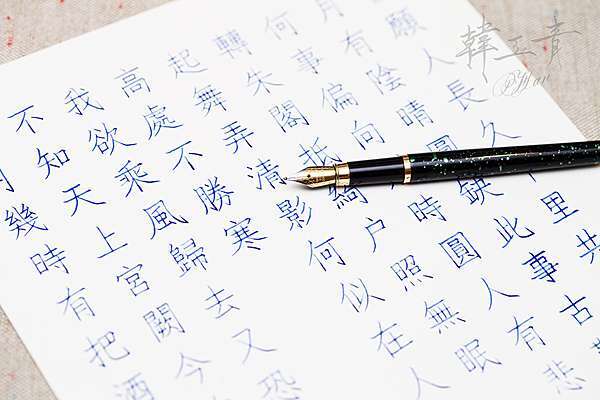 幾時有把酒
不知天上宮闕今
我欲乘風歸去又恐
高處不勝寒
起舞弄清影何似在人
轉朱閣抵綺戶照無眠
何事偏向時圓人有悲
月有陰晴圓缺此事古
願人長久里共